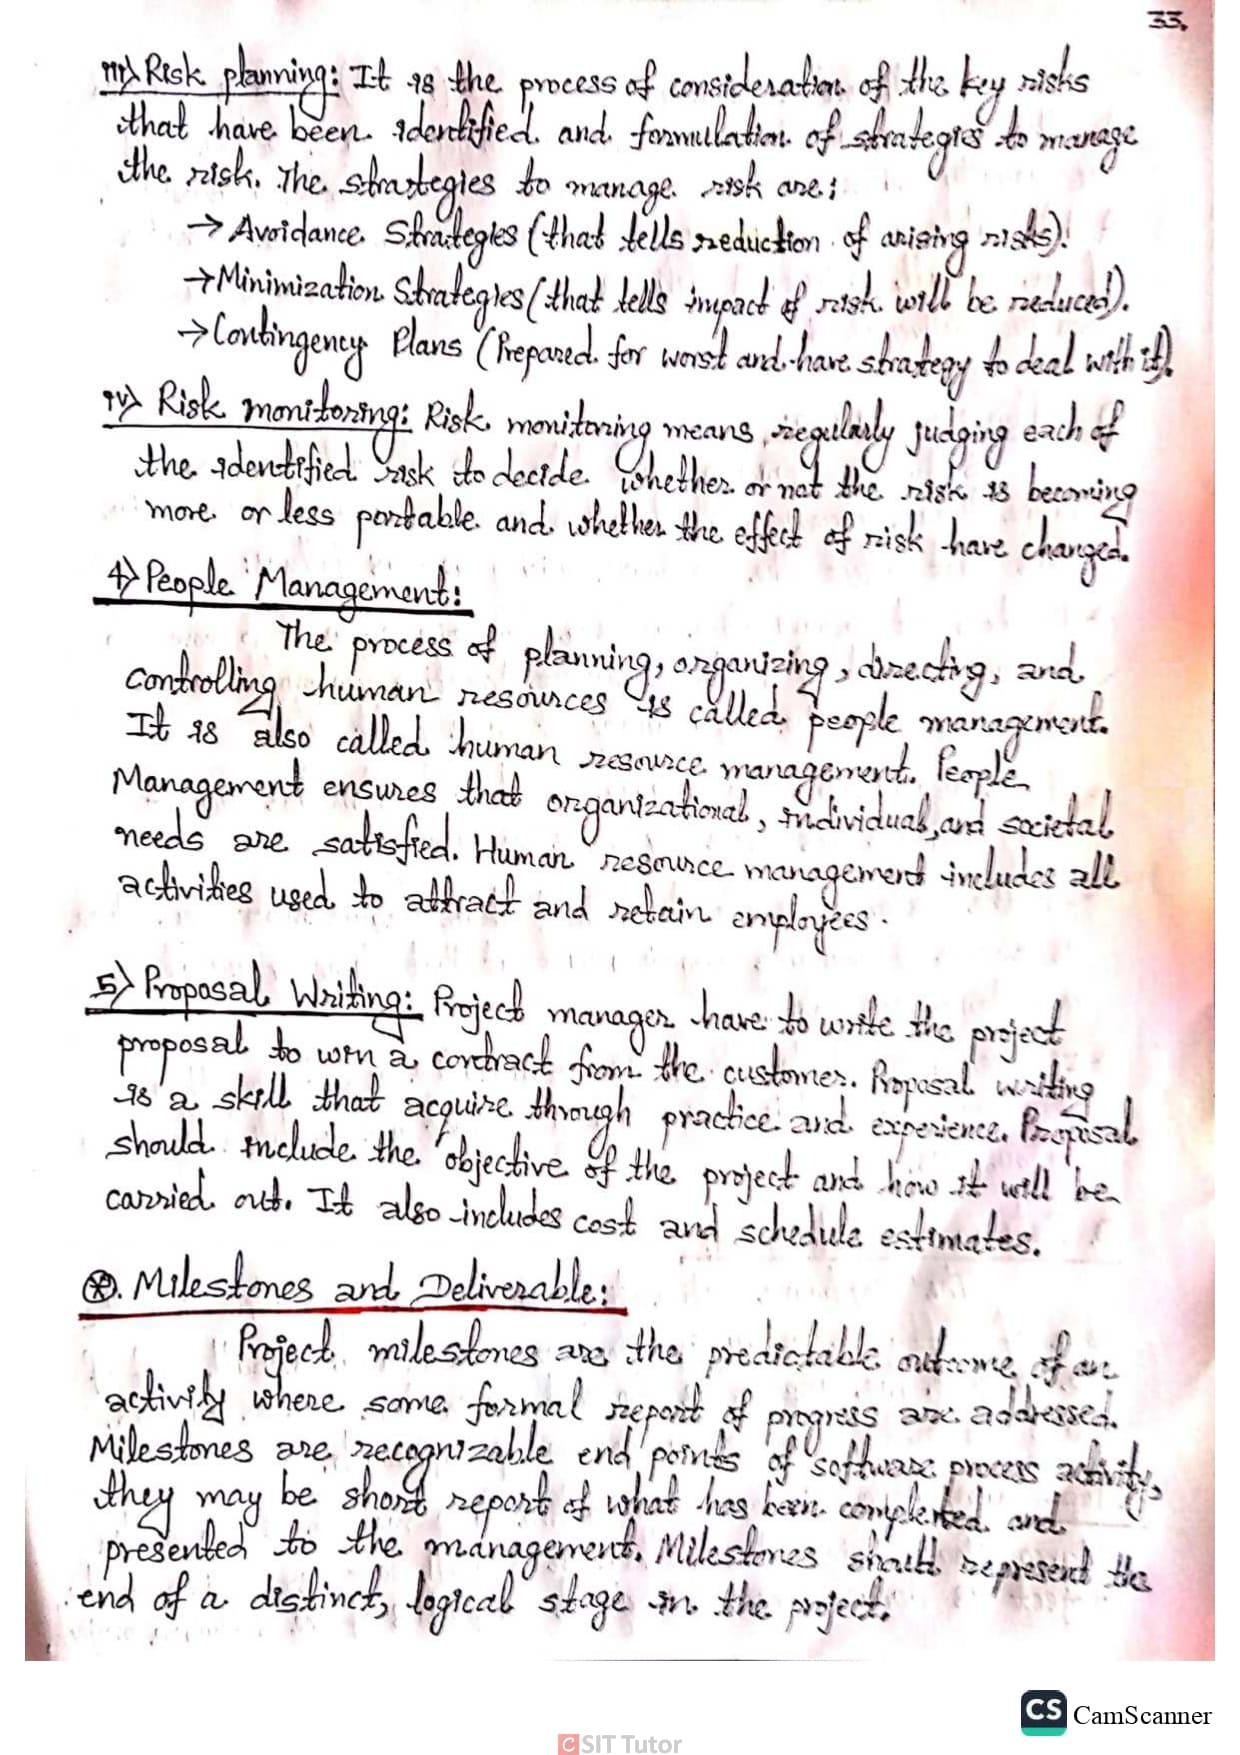 33.
iii) Risk planning: It is the process of consideration of the key risks
that have been identified and formulation of strategies to manage
the risk. The strategies to manage risk are:
→ Avoidance Strategies (that tells reduction of arising risks).
→ Minimization Strategies (that tells impact of risk will be reduced).
→ Contingency Plans (Prepared for worst and have strategy to deal with it).
iv) Risk monitoring: Risk monitoring means regularly judging each of
the identified risk to decide whether or not the risk is becoming
more or less portable and whether the effect of risk have changed.
4) People Management:
The process of planning, organizing, directing, and
controlling human resources is called people management.
It is also called human resource management. People
Management ensures that organizational, individual, and societal
needs are satisfied. Human resource management includes all
activities used to attract and retain employees.
5) Proposal Writing: Project manager have to write the project
proposal to win a contract from the customer. Proposal writing
is a skill that acquire through practice and experience. Proposal
should include the objective of the project and how it will be
carried out. It also includes cost and schedule estimates.
⊛. Milestones and Deliverable:
Project milestones are the predictable outcome of an
activity where some formal report of progress are addressed.
Milestones are recognizable end points of software process activity,
they may be short report of what has been completed and
presented to the management. Milestones should represent the
end of a distinct, logical stage in the project.
CS CamScanner
CSIT Tutor